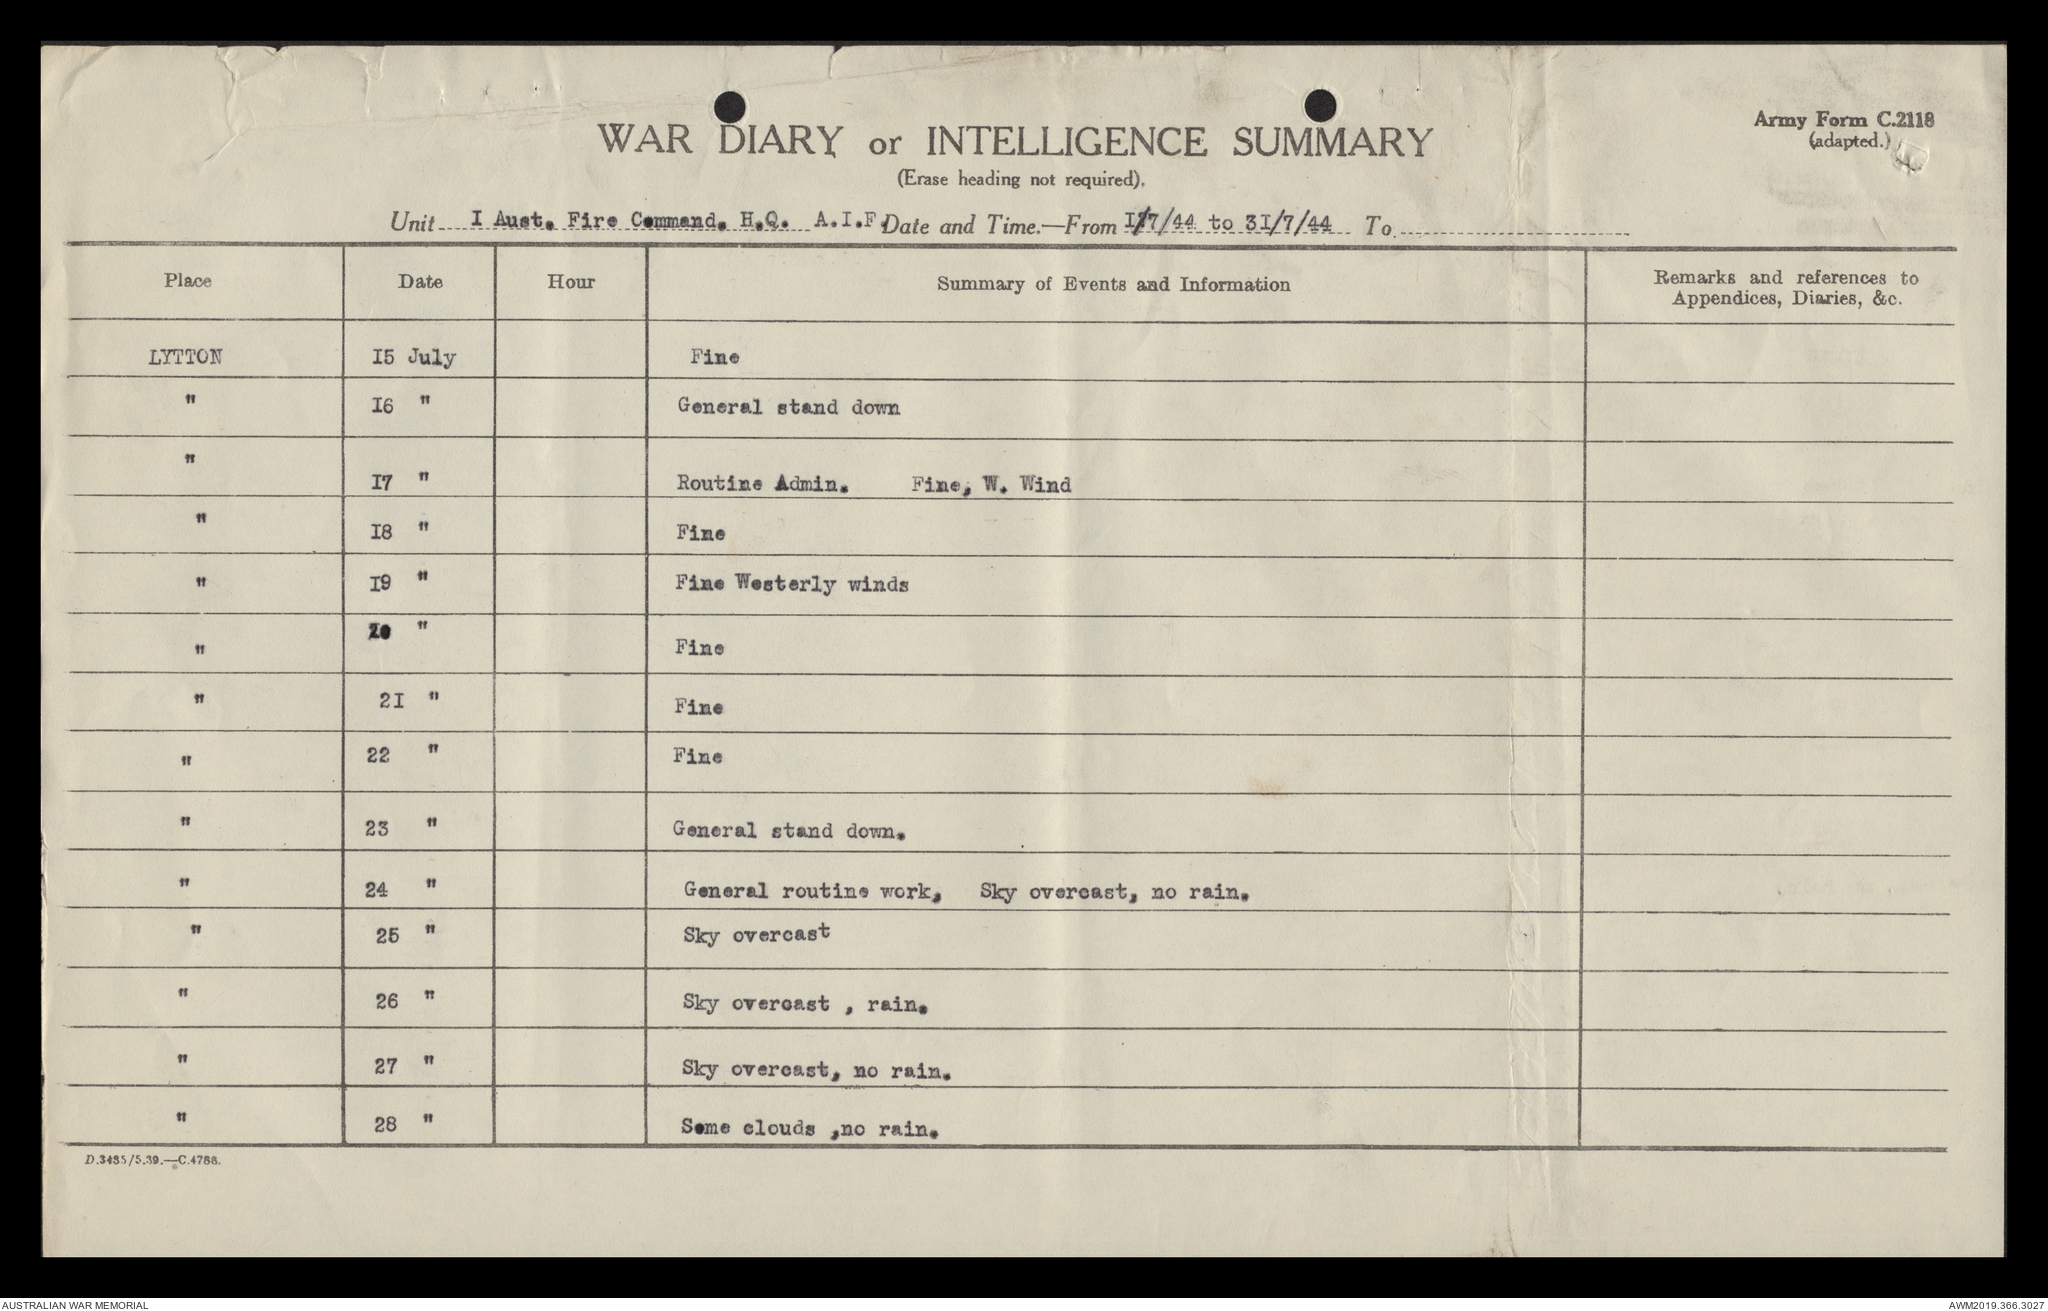 Army Form C.2118
(adapted.)
WAR DIARY or INTELLIGENCE SUMMARY
(Erase heading not required).
Unit I Aust. Fire Command. H.Q. A.I.F. Date and Time.—From I/7/44 to 3I/7/44 To
Place Date Hour Summary of Events and Information Remarks and references to Appendices, Diaries, &c.
LYTTON I5 July Fine
" I6 " General stand down
" I7 " Routine Admin. Fine, W. Wind
" I8 " Fine
" I9 " Fine Westerly winds
" 20 " Fine
" 2I " Fine
" 22 " Fine
" 23 " General stand down.
" 24 " General routine work, Sky overcast, no rain.
" 25 " Sky overcast
" 26 " Sky overcast , rain.
" 27 " Sky overcast, no rain.
" 28 " Some clouds ,no rain.
D.3485/5.39.—C.4788.
AUSTRALIAN WAR MEMORIAL AWM2019.366.3027